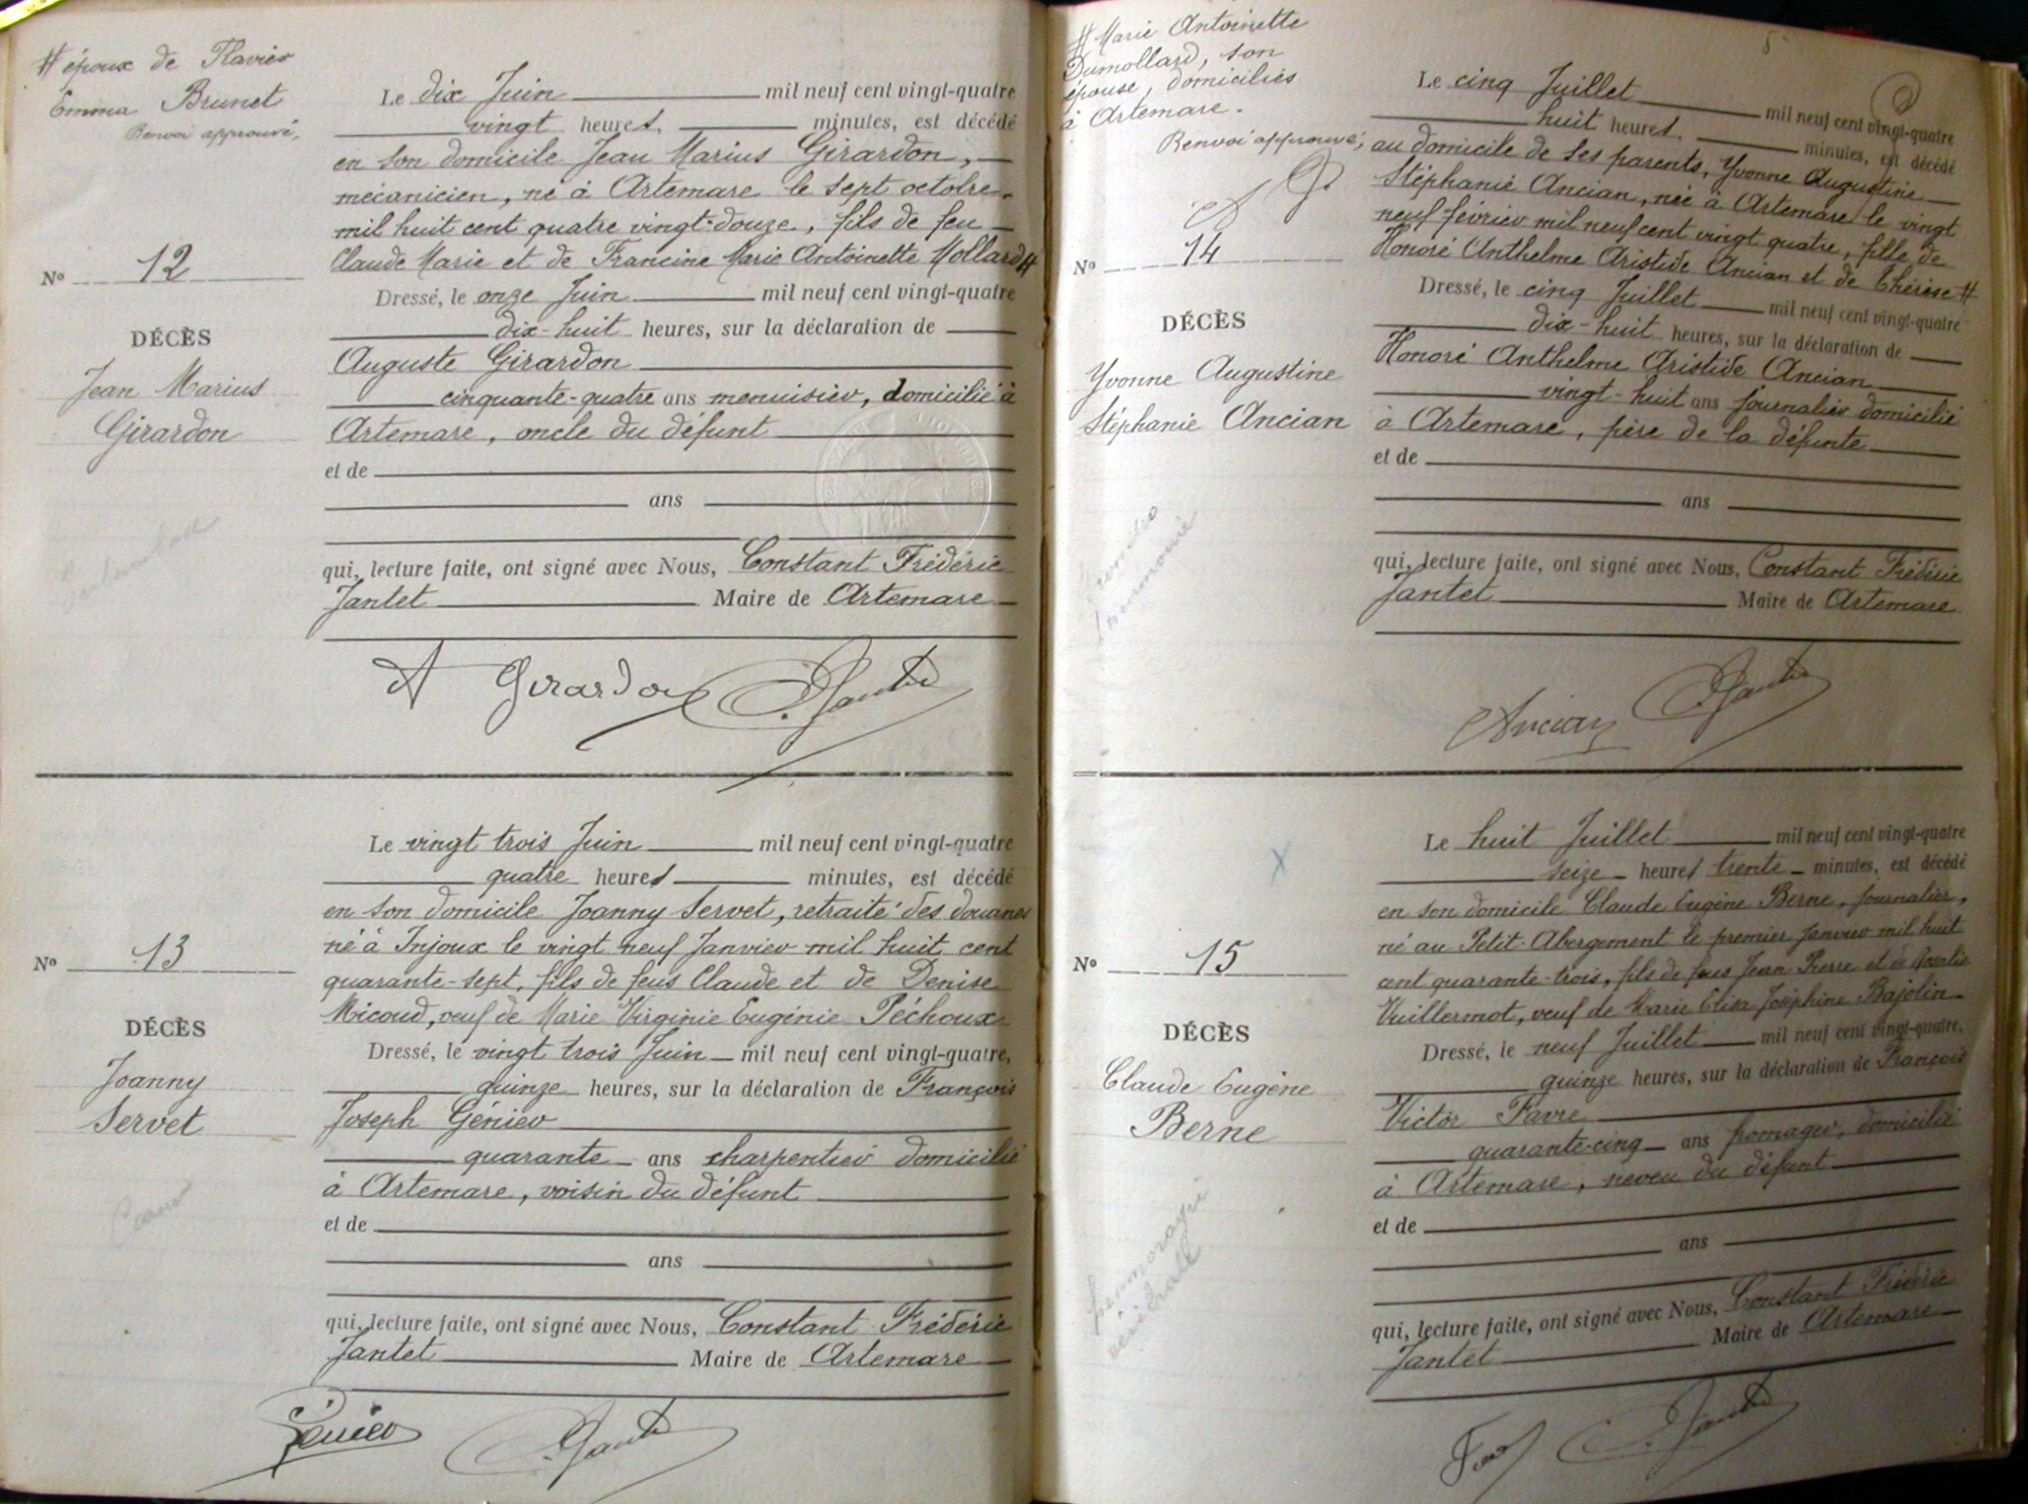 # époux de Flavie
Emma Brunet
Renvoi approuvé.
Le dix Juin mil neuf cent vingt-quatre
vingt heures, minutes, est décédé
en son domicile Jean Marius Girardon,
mécanicien, né à Artemare le sept octobre
mil huit cent quatre vingt-douze, fils de feu
Claude Marie et de Francine Marie Antoinette Mollard #
No 12
Dressé, le onze Juin mil neuf cent vingt-quatre
dix-huit heures, sur la déclaration de
DÉCÈS
Jean Marius
Girardon
Auguste Girardon
cinquante-quatre ans menuisier, domicilié à
Artemare, oncle du défunt
et de
ans
qui, lecture faite, ont signé avec Nous, Constant Frédéric
Jantet Maire de Artemare
A Girardon C. Jantet
Le vingt trois Juin mil neuf cent vingt-quatre
quatre heures minutes, est décédé
en son domicile Joanny Servet, retraité des douanes
né à Injoux le vingt neuf Janvier mil huit cent
quarante-sept, fils de feus Claude et de Denise
Micoud, veuf de Marie Virginie Eugénie Péchoux
No 13
DÉCÈS
Joanny
Servet
Dressé, le vingt trois Juin mil neuf cent vingt-quatre,
quinze heures, sur la déclaration de François
Joseph Génier
quarante ans charpentier domicilié
à Artemare, voisin du défunt
et de
ans
qui, lecture faite, ont signé avec Nous, Constant Frédéric
Jantet Maire de Artemare
Génier C. Jantet
# Marie Antoinette
Dumollard, son
épouse, domiciliés
à Artemare.
Renvoi approuvé,
Le cinq Juillet mil neuf cent vingt-quatre
huit heures. minutes, est décédé
au domicile de ses parents, Yvonne Augustine
Stéphanie Ancian, née à Artemare le vingt
neuf février mil neuf cent vingt quatre, fille de
Honoré Anthelme Aristide Ancian et de Thérèse #
No 14
DÉCÈS
Yvonne Augustine
Stéphanie Ancian
Dressé, le cinq Juillet mil neuf cent vingt-quatre
dix-huit heures, sur la déclaration de
Honoré Anthelme Aristide Ancian
vingt-huit ans journalier domicilié
à Artemare, père de la défunte
et de
ans
qui, lecture faite, ont signé avec Nous, Constant Frédéric
Jantet Maire de Artemare
Ancian C. Jantet
Le huit Juillet mil neuf cent vingt-quatre
seize heures trente minutes, est décédé
en son domicile Claude Eugène Berne, Journalier,
né au Petit-Abergement le premier Janvier mil huit
cent quarante-trois, fils de feus Jean Pierre et de Rosalie
Vuillermot, veuf de Marie Elisa Joséphine Bajolin
No 15
DÉCÈS
Claude Eugène
Berne
hemmoragie
cérébrale
Dressé, le neuf Juillet mil neuf cent vingt-quatre,
quinze heures, sur la déclaration de François
Victor Favre
quarante-cinq ans fromager, domicilié
à Artemare, neveu du défunt
et de
ans
qui, lecture faite, ont signé avec Nous, Constant Frédéric
Jantet Maire de Artemare
C. Jantet